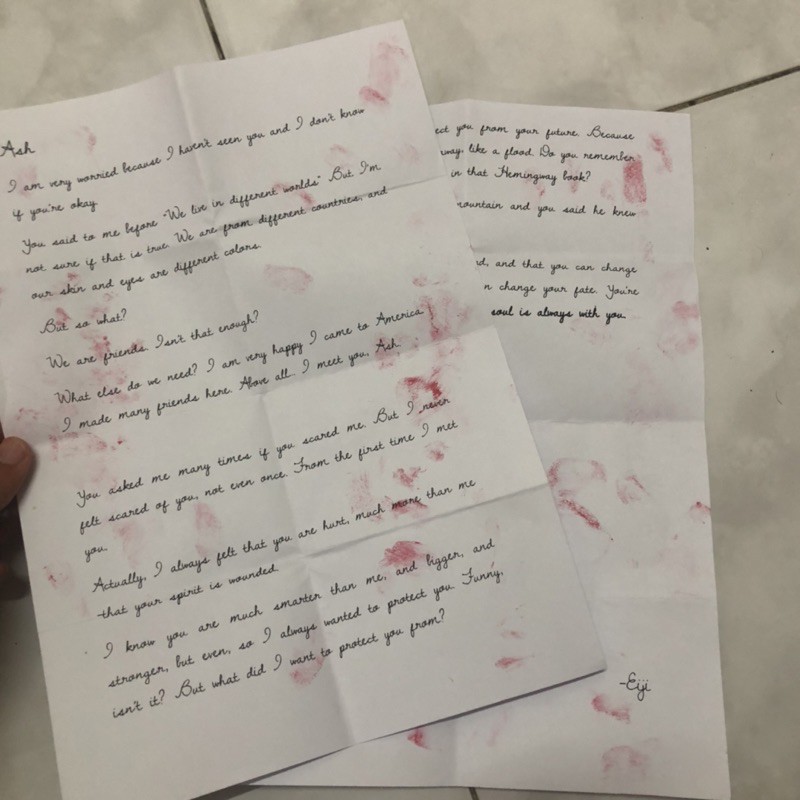 Ash
I am very worried because I haven't seen you and I don't know
if you're okay
You said to me before "We live in different worlds" But I'm
not sure if that is true. We are from different countries, and
our skin and eyes are different colors.
But so what?
We are friends. Isn't that enough?
What else do we need? I am very happy I came to America
I made many friends here. Above all I meet you, Ash.
You asked me many times if you scared me. But I never
felt scared of you, not even once. From the first time I met
you.
Actually, I always felt that you are hurt, much more than me
-that your spirit is wounded.
I know you are much smarter than me, and bigger, and
stronger, but even, so I always wanted to protect you. Funny,
isn't it? But what did I want to protect you from?
ect you from your future. Because
away, like a flood. Do you remember
in that Hemingway book?
mountain and you said he knew
and that you can change
n change your fate. You're
soul is always with you.
-Eiji